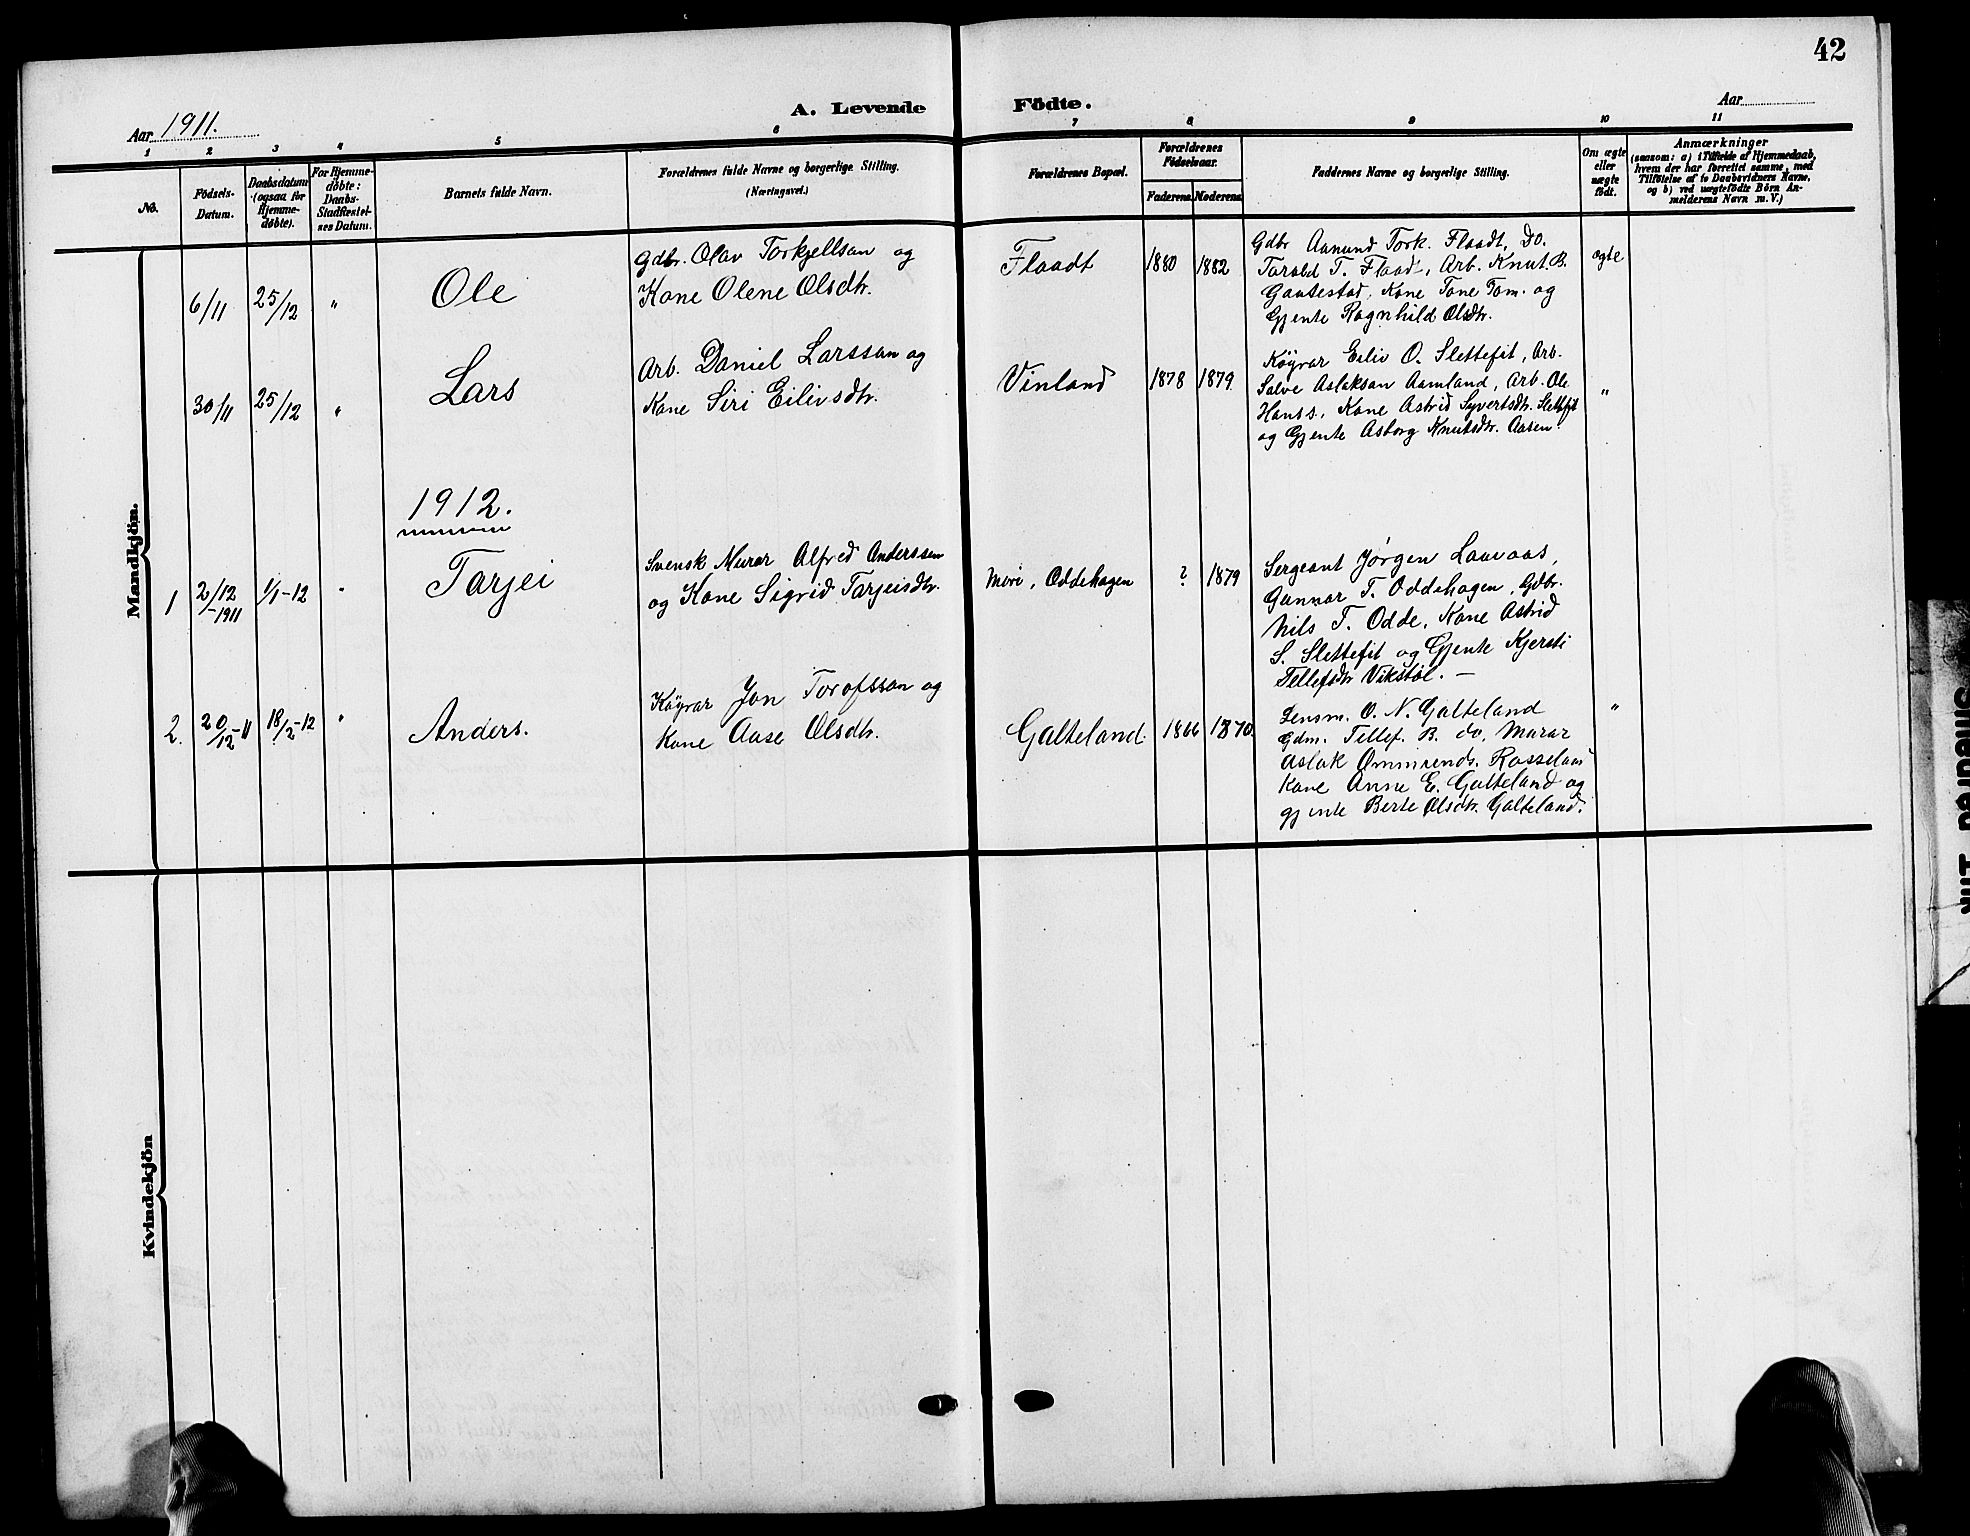 42
A. Levende Födte.
Aar 1911.
Aar
1 2 3 4 5 6 7 8 9 10 11
No.
Födsels-
Datum.
Daabsdatum
(ogsaa for
Hjemme-
döbte).
For Hjemme-
döbte:
Daabs-
Stadfæstel-
ses Datum.
Barnets fulde Navn.
Forældrenes fulde Navne og borgerlige Stilling.
(Næringsvei.)
Forældrenes Bopæl.
Forældrenes
Födselsaar.
Faderens. Moderens.
Faddernes Navne og borgerlige Stilling.
Om ægte
eller
uægte
födt.
Anmærkninger
(saasom: a) i Tilfælde af Hjemmedaab,
hvem der har forrettet samme, med
Tilföielse af to Daabsvidners Navne,
og b) ved uægtefödte Börn An-
melderens Navn m. V.)
Mandkjön.
6/11 25/12 " Ole
Gdbr. Olav Torkjellsan og
Kone Olene Olsdtr.
Flaadt 1880 1882
Gdbr Aanund Tork. Flaadt, Do.
Tarald T. Flaadt, Arb. Knut B.
Gautestad, Kone Tone Tom. og
Gjente Ragnhild Olsdtr.
ægte
30/11 25/12 " Lars
Arb. Daniel Larssan og
Kone Siri Eilivsdtr.
Vinland 1878 1879
Köyrar Eiliv O. Slettefit, Arb.
Salve Aslaksan Aamland, Arb. Ole
Hanss, Kone Astrid Syvertsdtr. Slettefit
og Gjente Asborg Knutsdtr. Aasen.
"
1912.
1 2/12 -1911 1/1-12 " Tarjei
Svensk Murar Alfred Anderssen
og Kone Sigrid Tarjeisdtr.
Moi, Oddehagen ? 1879
Sergeant Jørgen Lauvaas,
Gunnar T. Oddehagen, Gdbr.
Nils T. Odde, Kone Astrid
S. Slettefit og Gjente Kjersti
Tellefsdtr Vikstøl. —
2. 20/12-11 18/2-12 " Anders.
Köyrar Jon Torofssan og
Kone Aase Olsdtr.
Galteland. 1866 1870.
Lensm. O. N. Galteland
Gdm. Tellef. B. do, Murar
Aslak Ommunds. Rosseland
Kone Anne E. Galteland og
gjente Berte Olsdtr. Galteland.
"
Kvindekjön